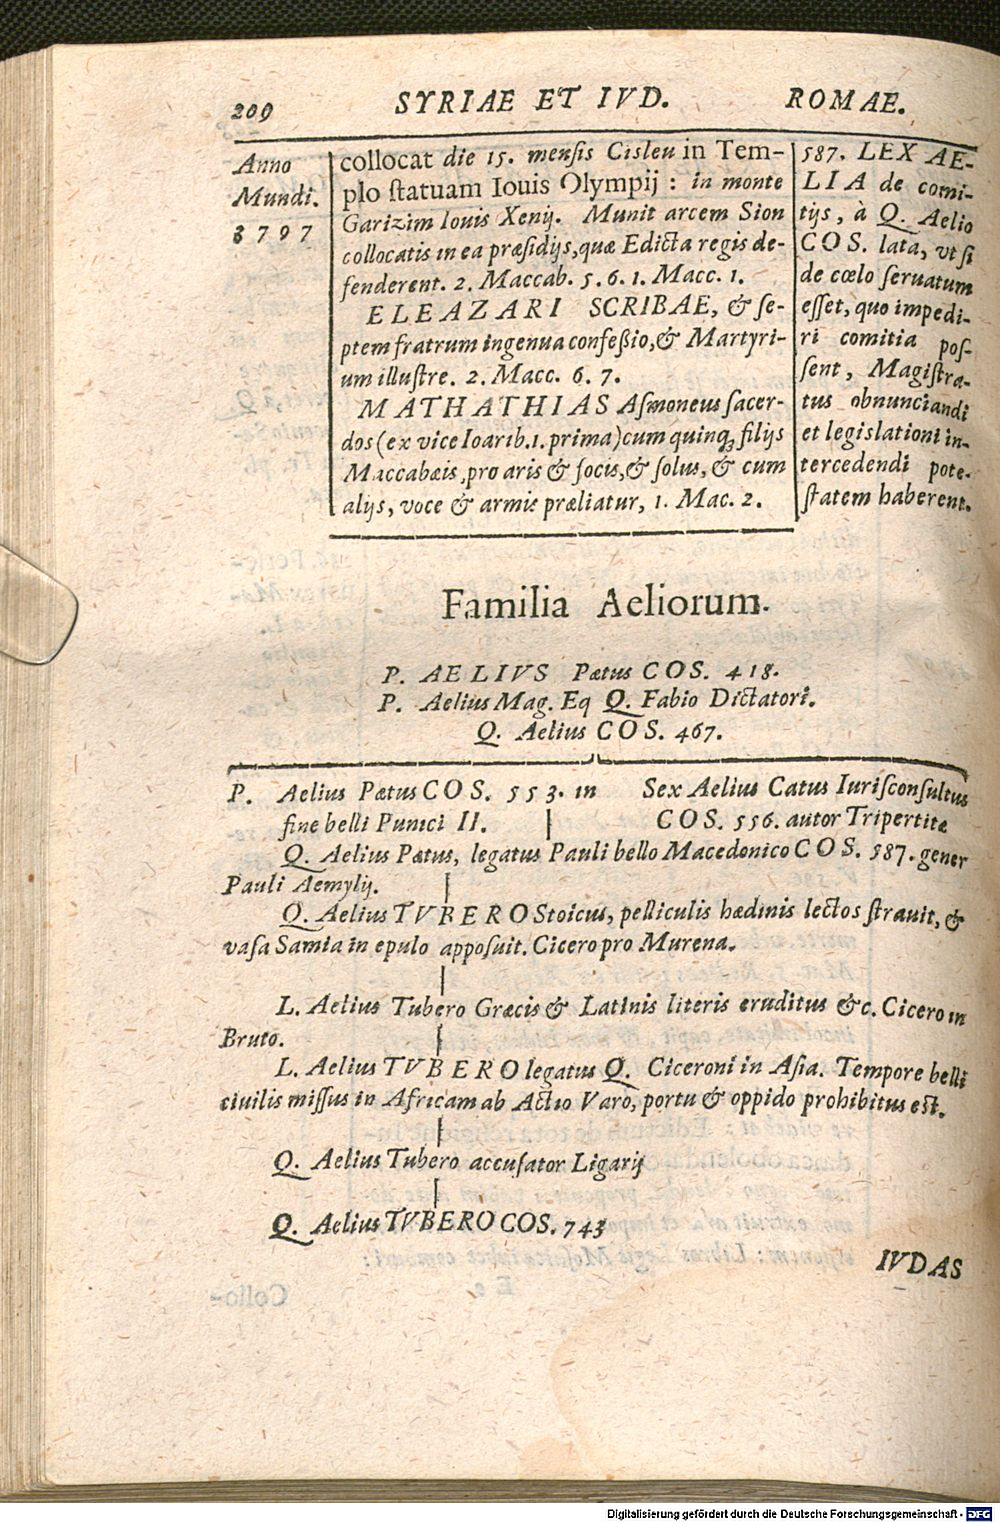 209 SYRIAE ET IVD. ROMAE.
Anno
Mundi.
3797
collocat die 15. mensis Cisleu in Tem-
plo statuam Iouis Olympij : in monte
Garizim Iouis Xenij. Munit arcem Sion
collocatis in ea præsidijs, quæ Edicta regis de-
fenderent. 2. Maccab. 5. 6. 1. Macc. 1.
ELEAZARI SCRIBAE, & se-
ptem fratrum ingenua confeßio, & Martyri-
um illustre. 2. Macc. 6. 7.
MATHATHIAS Asmoneus sacer-
dos (ex vice Ioarib. 1. prima) cum quinq; filijs
Maccabæis, pro aris & focis, & solus, & cum
alijs, voce & armis præliatur, 1. Mac. 2.
587. LEX AE-
LIA de comi-
tijs, à Q. Aelio
COS. lata, vt si
de cœlo seruatum
esset, quo impedi-
ri comitia pos-
sent, Magistra-
tus obnunciandi
et legislationi in-
tercedendi pote-
statem haberent.
Familia Aeliorum.
P. AELIVS Pætus COS. 418.
P. Aelius Mag. Eq Q. Fabio Dictatori.
Q. Aelius COS. 467.
P. Aelius Pætus COS. 553. in
fine belli Punici II.
Sex Aelius Catus Iurisconsultus
COS. 556. autor Tripertitæ
Q. Aelius Pætus, legatus Pauli bello Macedonico COS. 587. gener
Pauli Aemylij.
Q. Aelius TVBERO Stoicus, pelliculis hædinis lectos strauit, &
vasa Samia in epulo apposuit. Cicero pro Murena.
L. Aelius Tubero Græcis & Latinis literis eruditus &c. Cicero in
Bruto.
L. Aelius TVBERO legatus Q. Ciceroni in Asia. Tempore belli
ciuilis missus in Africam ab Actio Varo, portu & oppido prohibitus est.
Q. Aelius Tubero accusator Ligarij
Q. Aelius TVBERO COS. 743
IVDAS
Digitalisierung gefördert durch die Deutsche Forschungsgemeinschaft - DFG